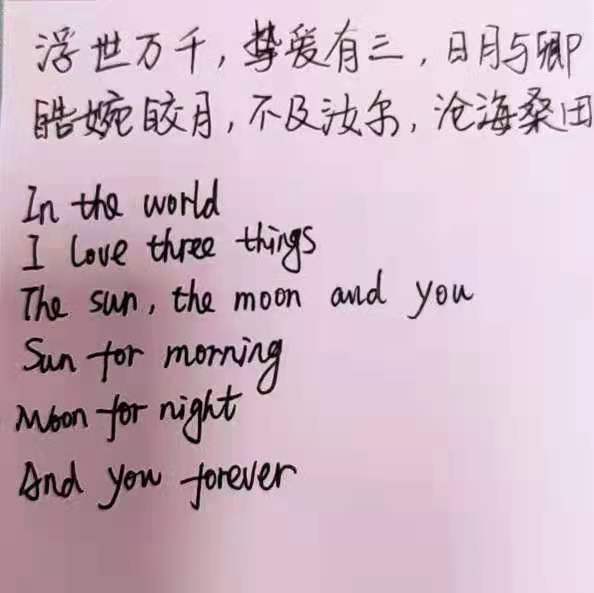 浮世万千，挚爱有三，日月与卿
皓婉皎月，不及汝尔，沧海桑田
In the world
I love three things
The sun, the moon and you
Sun for morning
Moon for night
And you forever